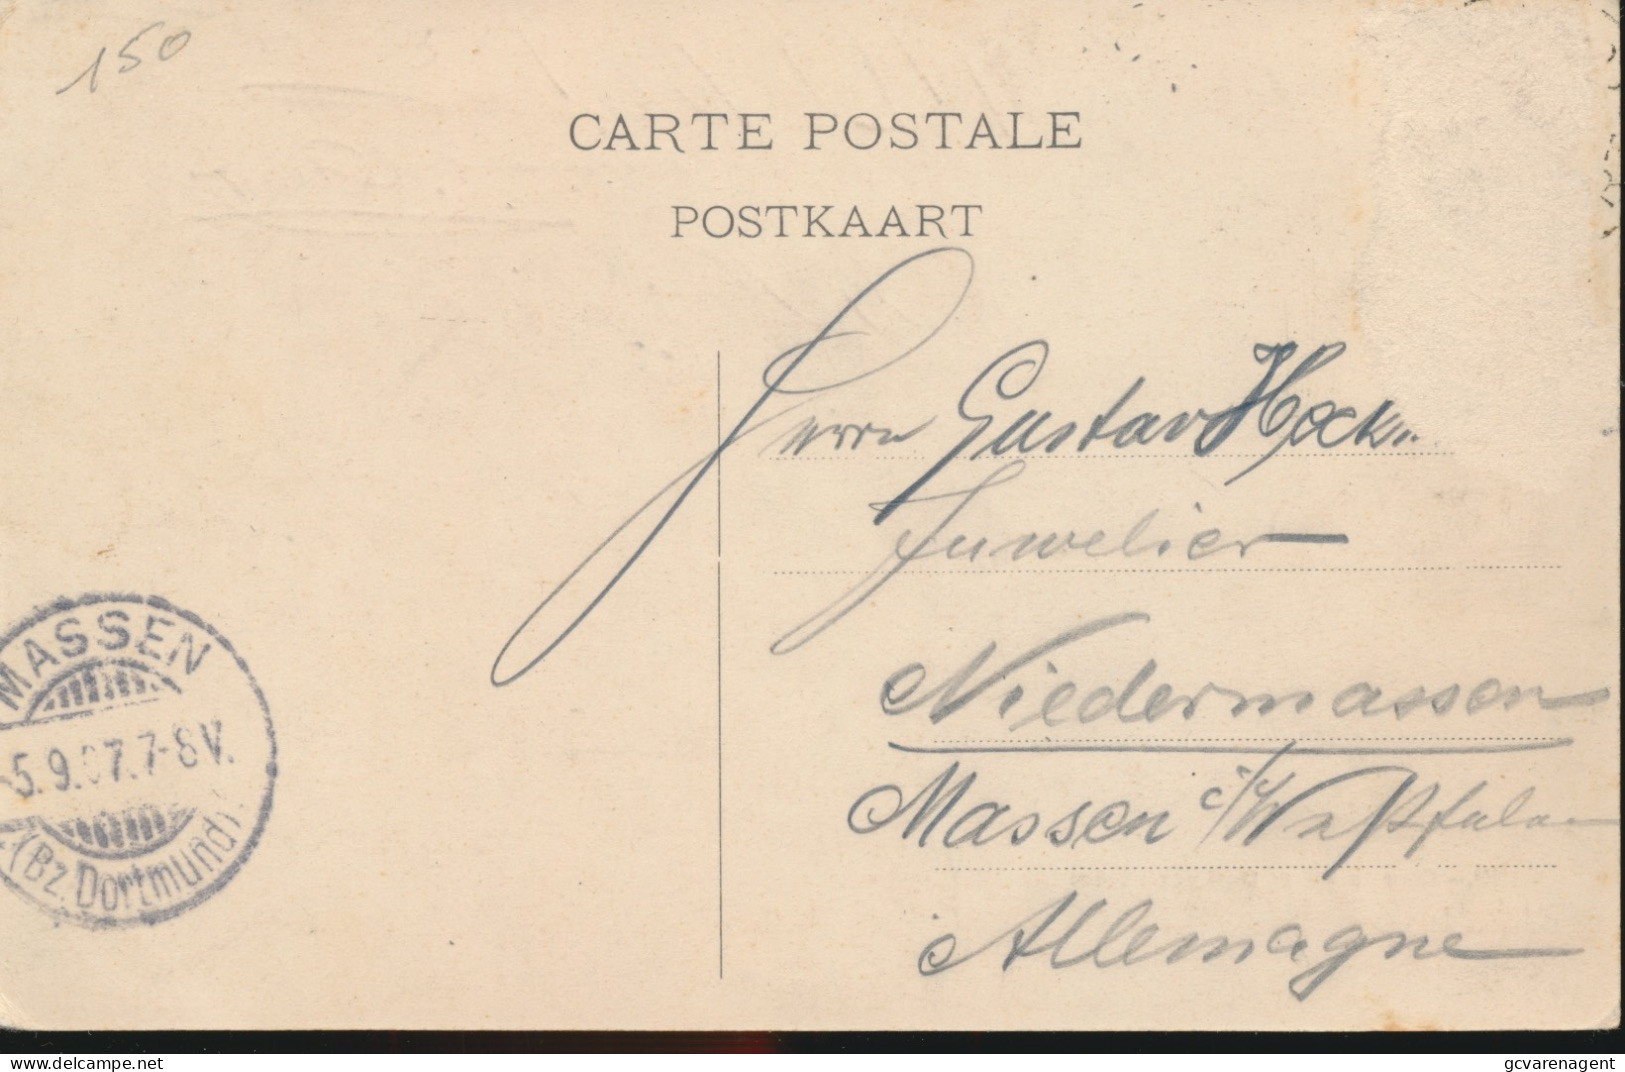 150
CARTE POSTALE
POSTKAART
Herrn Gustav Heck
Juwelier
Niedermassen
Massen i/Westfalen
Allemagne
MASSEN
5.9.07.7-8V.
(Bz. Dortmund)
gcvarenagent